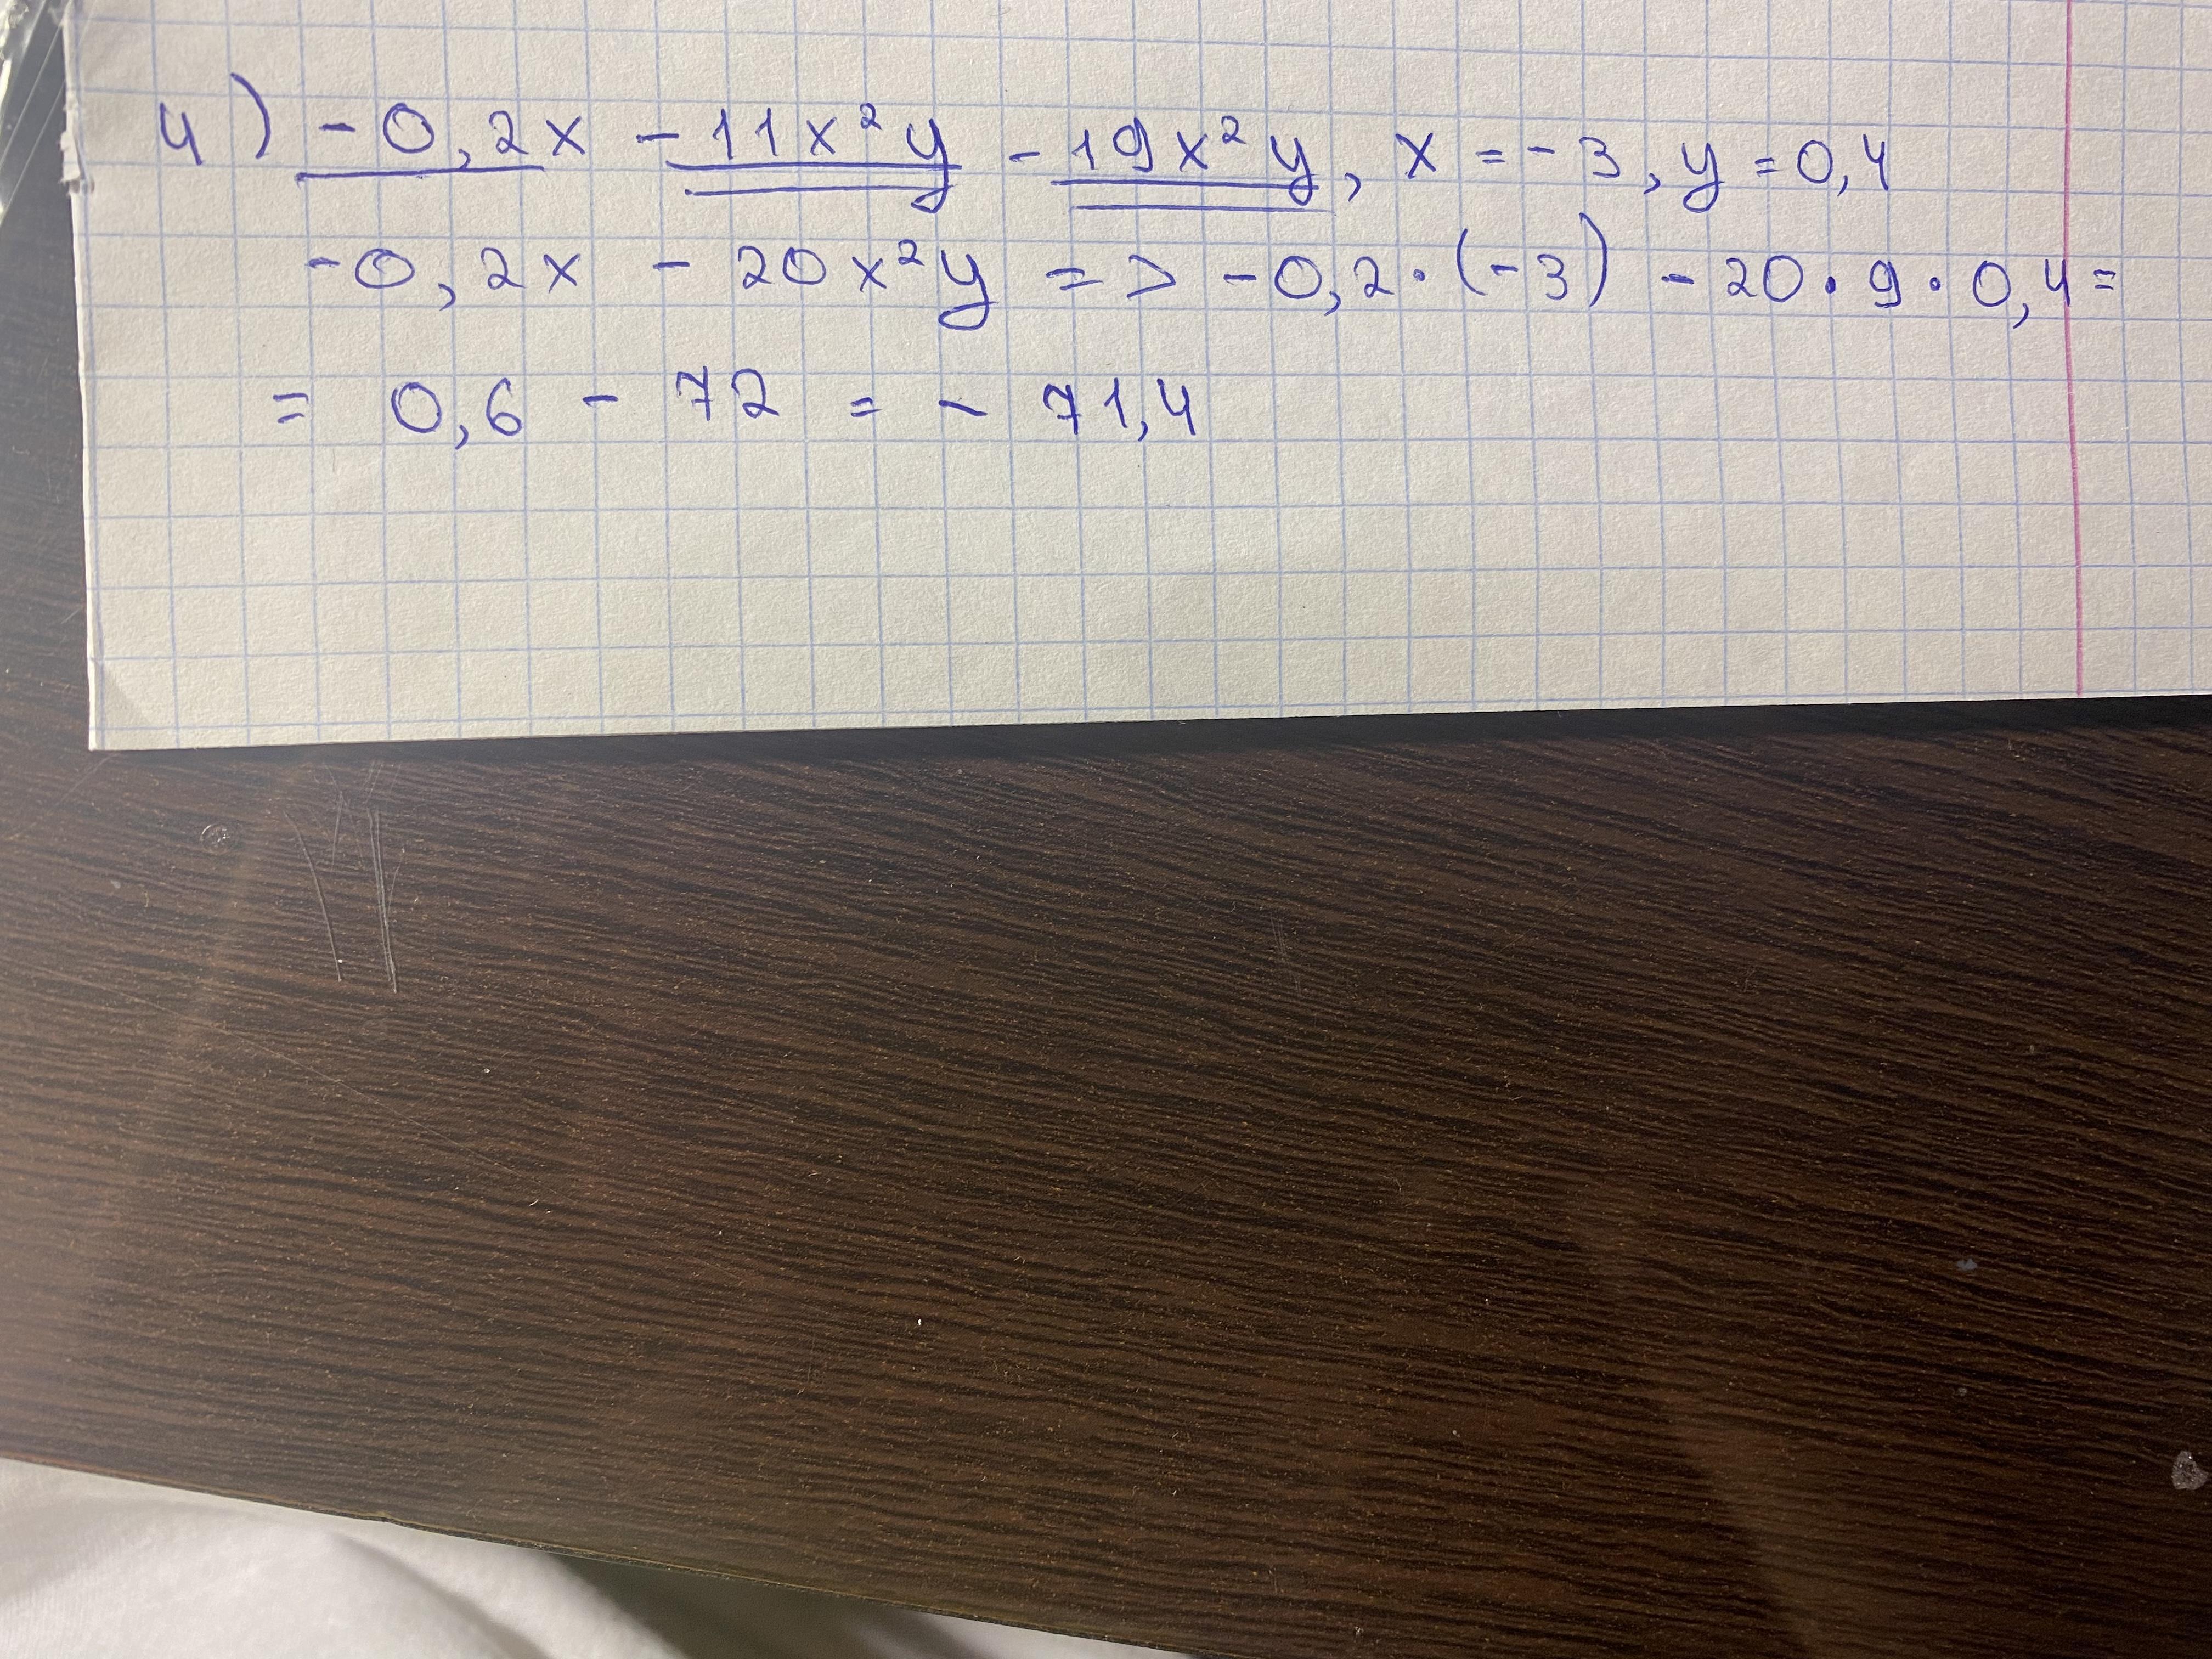 4) -0,2x - 11x²y - 19x²y, x = -3, y = 0,4
-0,2x - 20x²y => -0,2·(-3) - 20·9·0,4=
= 0,6 - 72 = - 71,4